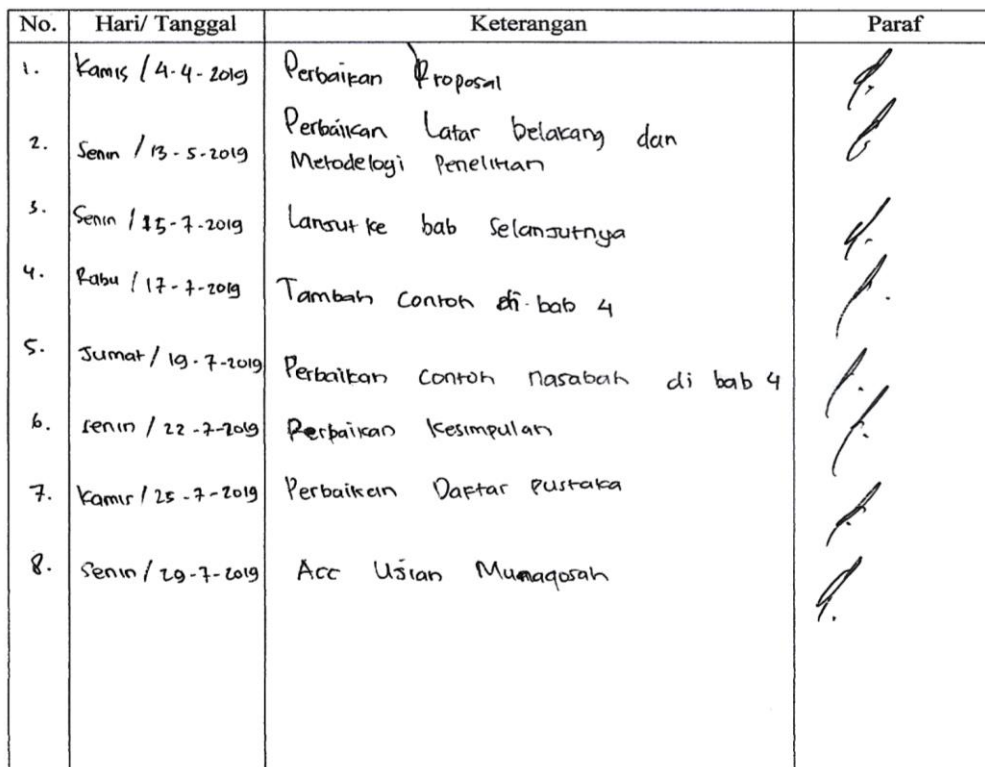 No. Hari/ Tanggal Keterangan Paraf
1. Kamis / 4-4-2019 Perbaikan Proposal
2. Senin / 13-5-2019 Perbaikan Latar belakang dan
Metodelogi Penelitian
3. Senin / 15-7-2019 Lanjut ke bab Selanjutnya
4. Rabu / 17-7-2019 Tambah Contoh di bab 4
5. Jumat / 19-7-2019 Perbaikan Contoh nasabah di bab 4
6. Senin / 22-7-2019 Perbaikan Kesimpulan
7. Kamis / 25-7-2019 Perbaikan Daftar Pustaka
8. Senin / 29-7-2019 Acc Ujian Munaqosah